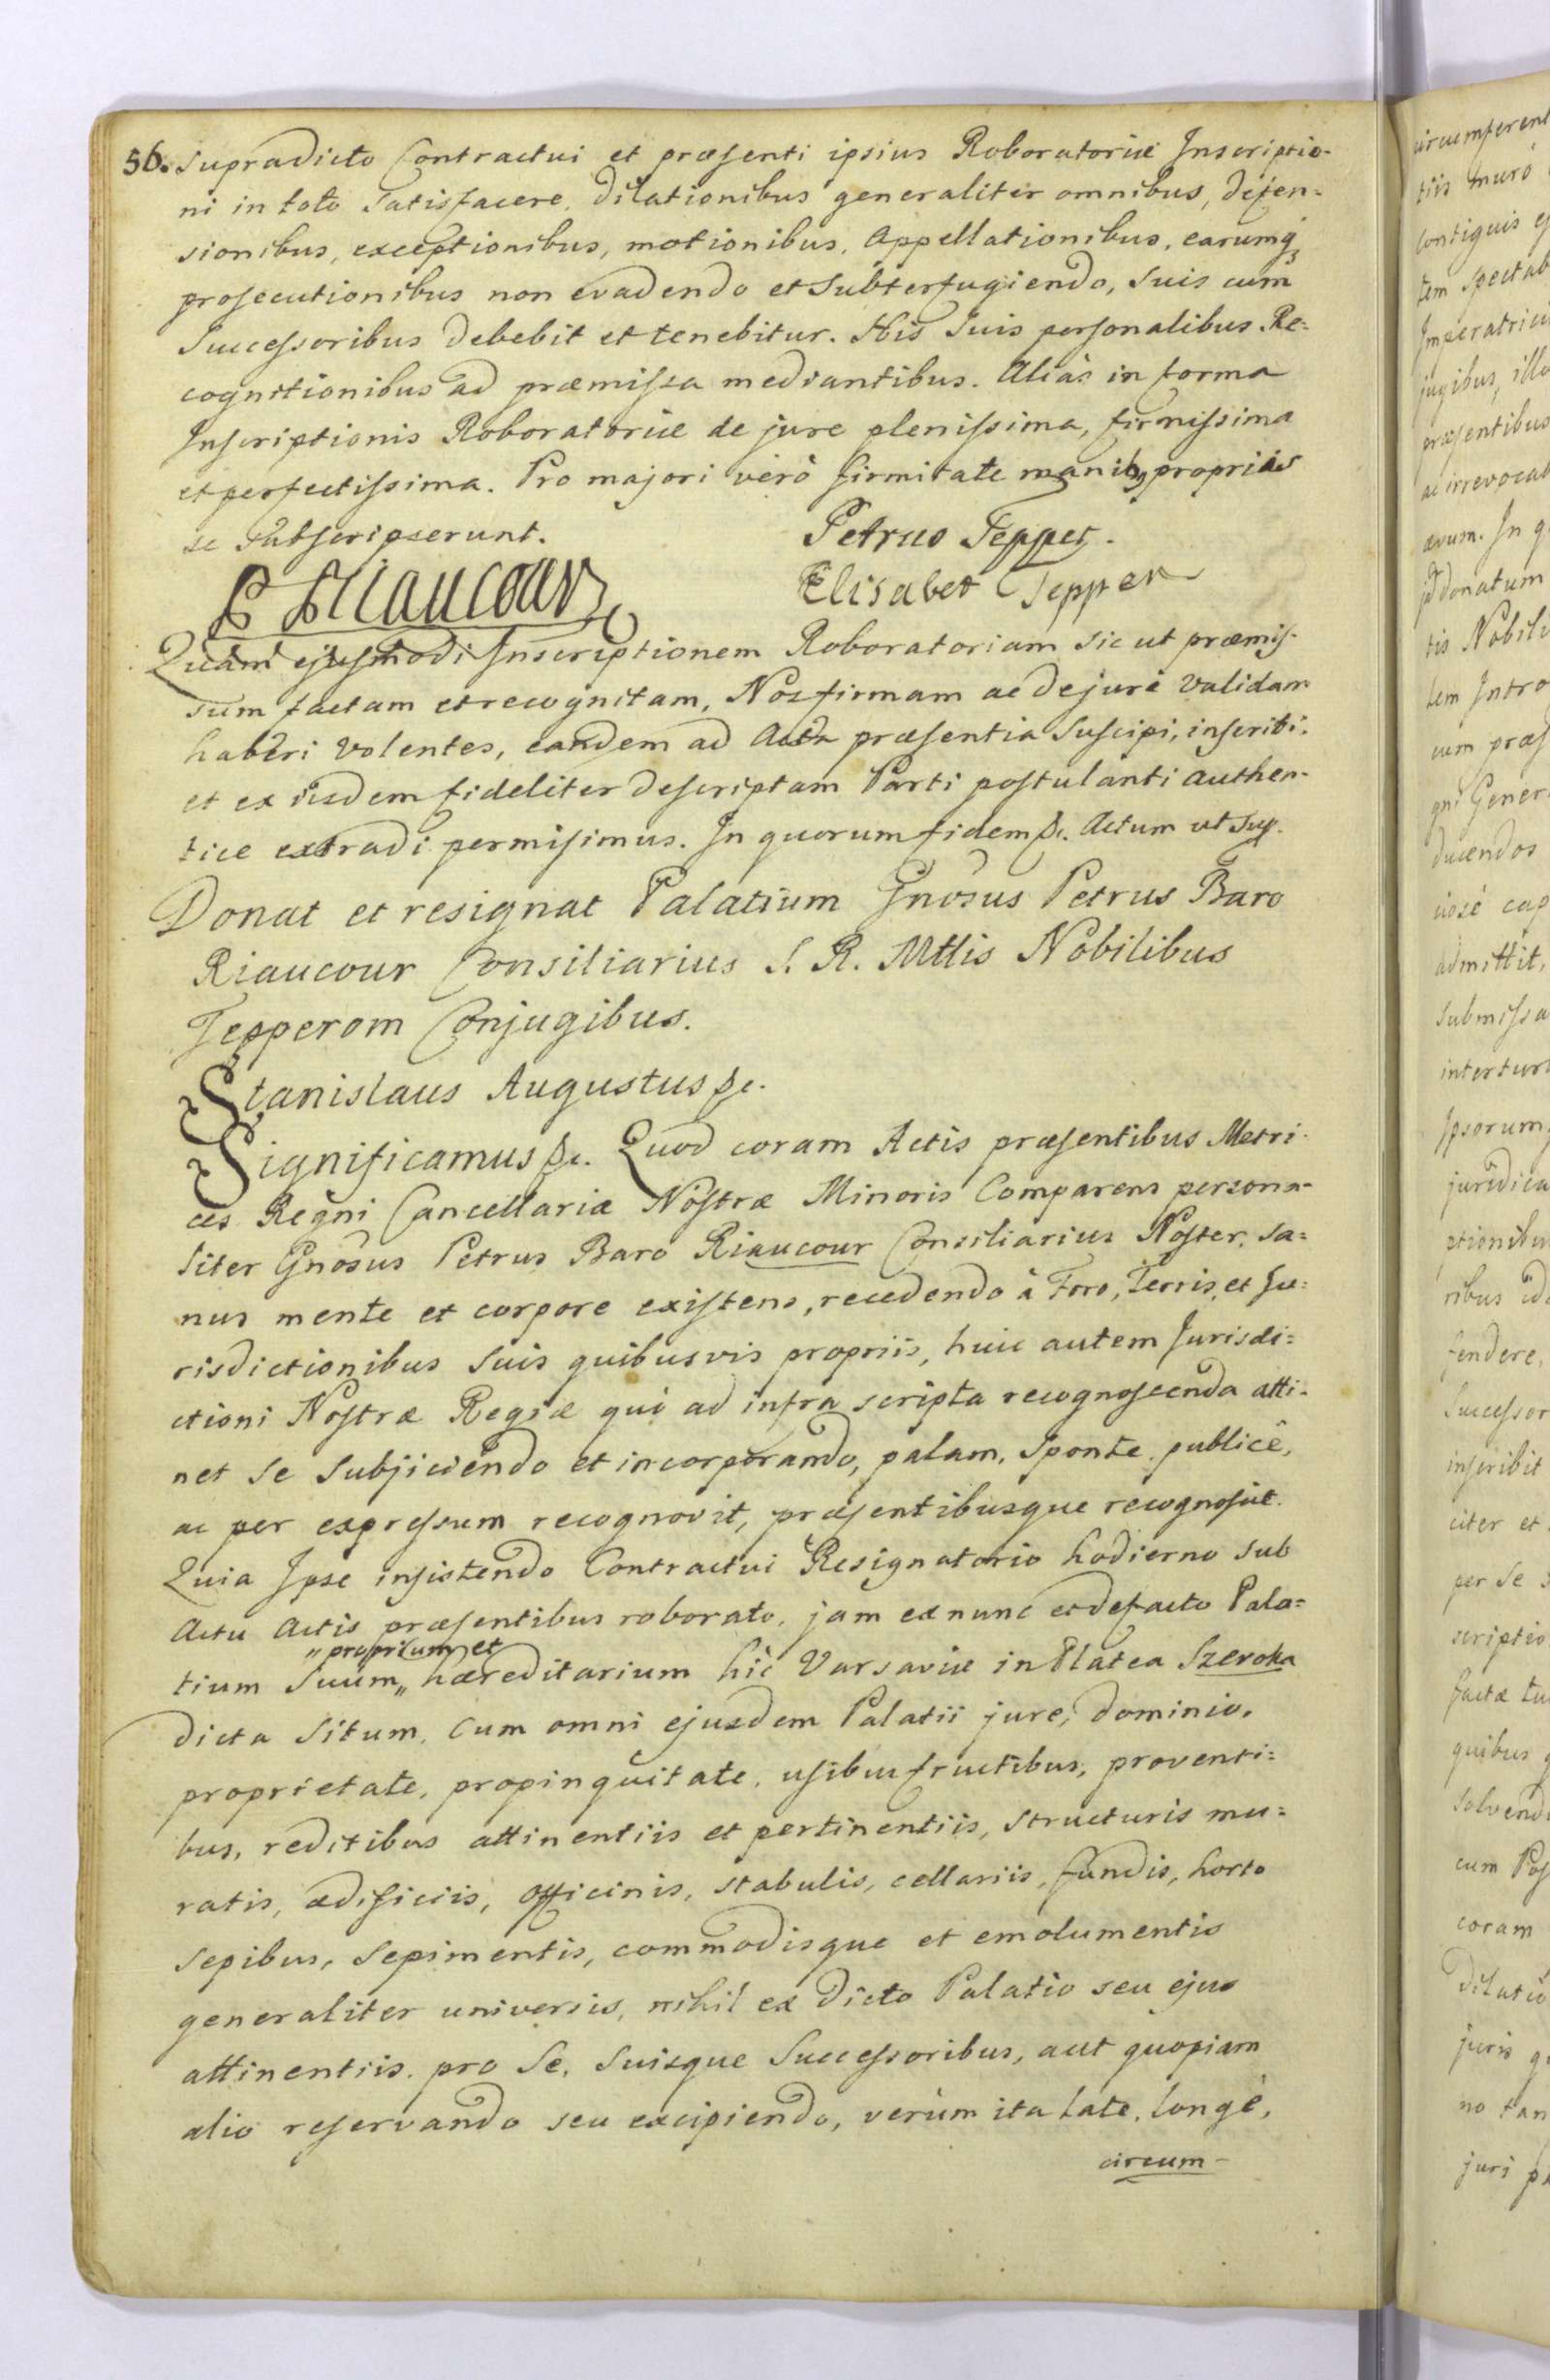 56. Supradicto Contractui et præsenti ipsius Roboratoriæ Inscriptio-
ni in toto satisfacere, Dilationibus generaliter omnibus, defen=
sionibus, exceptionibus, motionibus, Appellationibus, earumq3
prosecutionibus non evadendo et subterfugiendo, suis cum
Successoribus debebit et tenebitur. His suis personalibus Re=
cognitionibus ad præmissa mediantibus. Aliàs in forma
Inscriptionis Roboratoriæ de jure plenissima, firmissima
et perfectissima. Pro majori verò firmitate manibq propriis
se subscripserunt.
Petrus Tepper.
P Riaucour
Elisabet Tepper
Quam ejusmodi Inscriptionem Roboratoriam sic ut præmis-
sum factam et recognitam, Nos firmam ac de jure validam
haberi volentes, eandem ad Acta præsentia suscipi, inscribi,
et ex iisdem fideliter descriptam Parti postulanti authen-
tice extradi permisimus. In quorum fidem &c. Actum ut sup.
Donat et resignat Palatium Gnosus Petrus Baro
Riaucour Consiliarius S. R. Mttis Nobilibus
Tepperom Conjugibus.
Stanislaus Augustus &c.
Significamus &c. Quod coram Actis præsentibus Metri-
ces Regni Cancellariæ Nostræ Minoris Comparens persona-
liter Gnosus Petrus Baro Riaucour Consiliarius Noster, sa=
nus mente et corpore existens, recedendo à Foro, Terris, et Ju=
risdictionibus suis quibusvis propriis, huic autem Jurisdi=
ctioni Nostræ Regiæ quò ad infra scripta recognoscenda atti-
net se subjiciendo et incorporando, palam, sponte, publicè,
ac per expressum recognovit, præsentibusque recognoscit.
Quia Ipse insistendo Contractui Resignatorio hodierno sub
Actu Actis præsentibus roborato, jam ex nunc et de facto Pala=
" proprium et
tium Suum " hæreditarium hìc Varsaviæ in Platea Szeroka
dicta situm, Cum omni ejusdem Palatii jure, dominio,
proprietate, propinquitate, usibusfructibus, proventi=
bus, reditibus attinentiis et pertinentiis, structuris mu=
ratis, ædificiis, officinis, stabulis, cellariis, fundis, horto
sepibus, sepimentis, commodisque et emolumentis
generaliter universis, nihil ex dicto Palatio seu ejus
attinentiis pro Se, Suisque Successoribus, aut quopiam
alio reservando seu excipiendo, verùm ita late, longè,
circum-